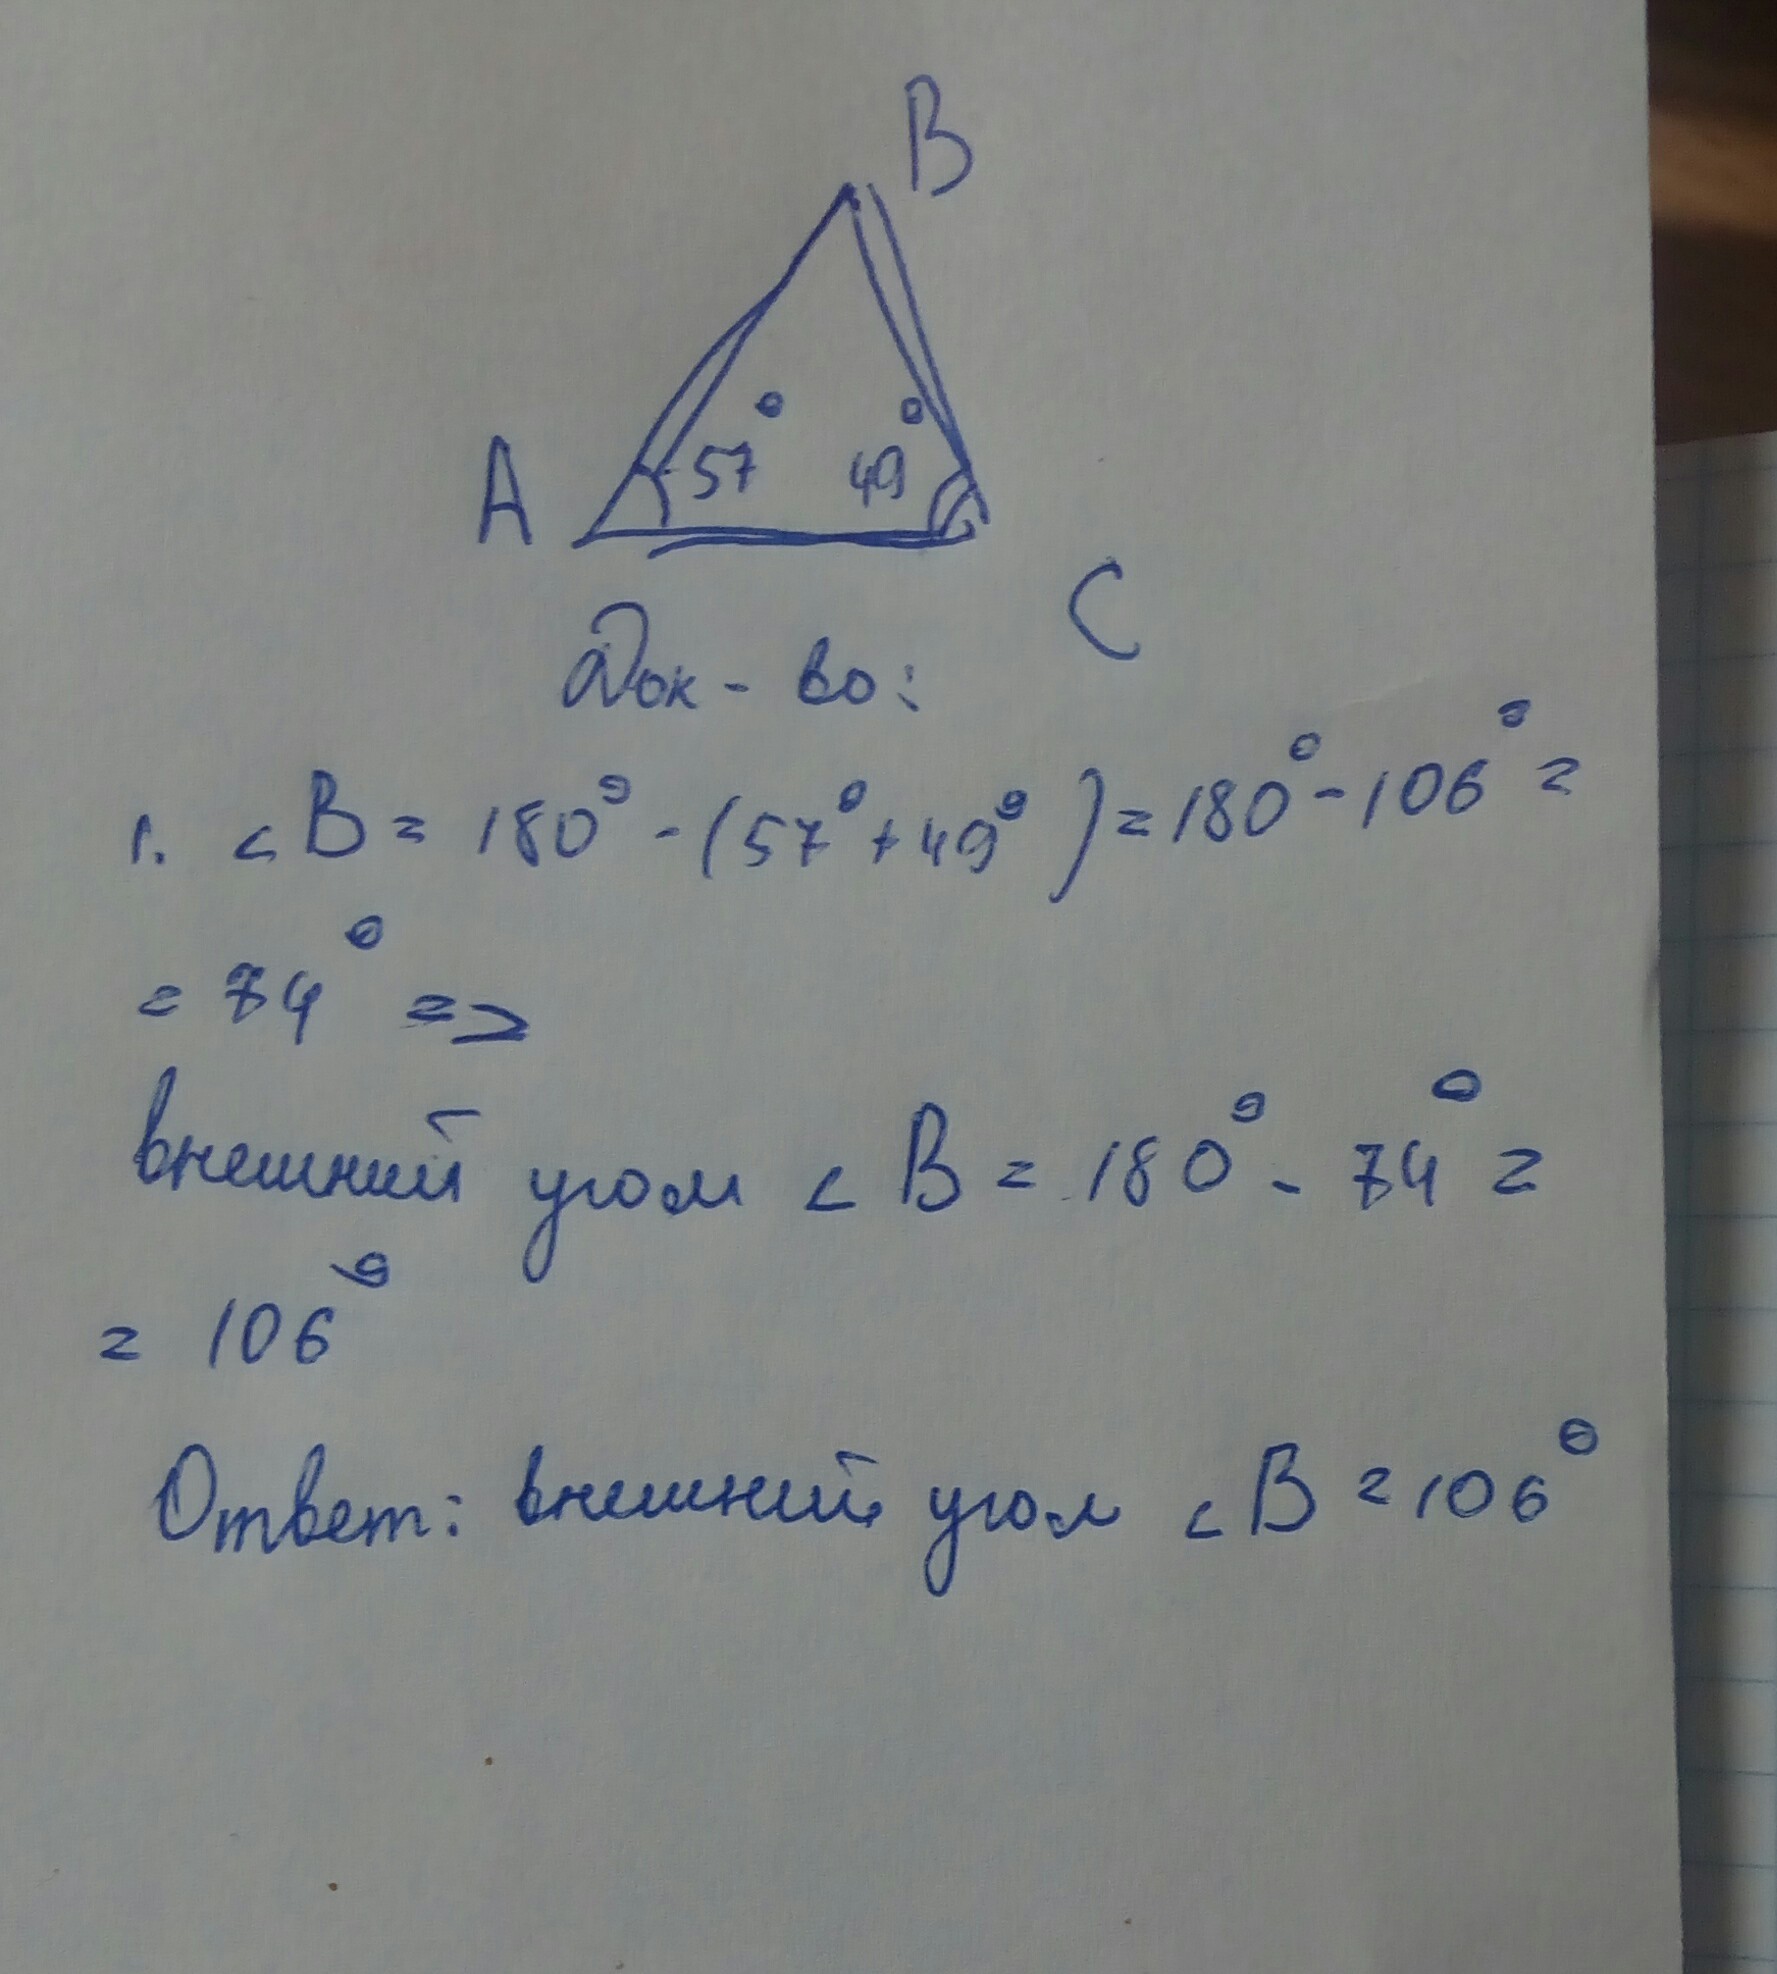 B
57° 49°
A
C
Док-во:
1. ∠B = 180° - (57° + 49°) = 180° - 106° =
= 74° =>
внешний угол ∠B = 180° - 74° =
= 106°
Ответ: внешний угол ∠B = 106°